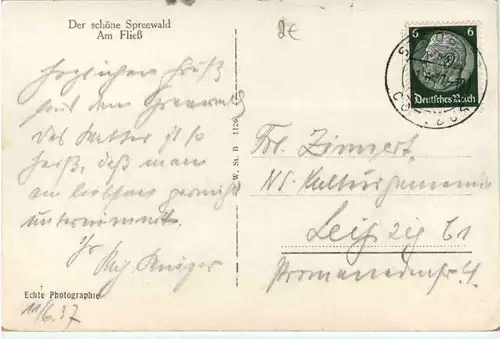 Der schöne Spreewald
Am Fließ
Herzlichen Gruß
aus dem Spreewald
Das Wetter ist so
heiß, daß man
am liebsten garnichts
unternimmt.
Ihr
Echte Photographie
11/6.37
W. St. B 1126
6 6
Deutsches Reich
Frl. Zinnert
NS. Kulturgemeinde
Leipzig C1